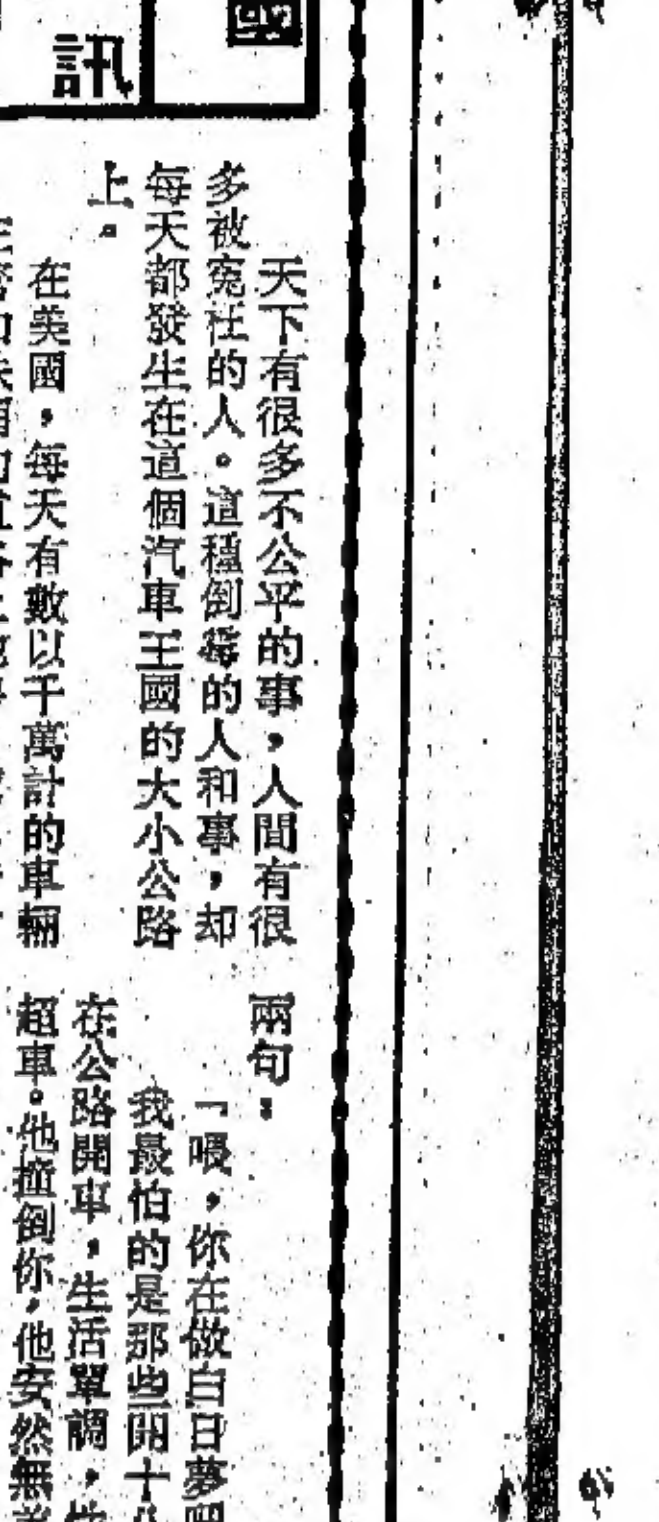 國
訊
天下有很多不公平的事，人間有很
多被冤枉的人。這種倒霉的人和事，却
每天都發生在這個汽車王國的大小公路
上。
在美國，每天有數以千萬計的車輛
兩句：
「喂，你在做白日夢
我最怕的是那些開十
在公路開車，生活單調，
超車。他撞倒你，他安然無